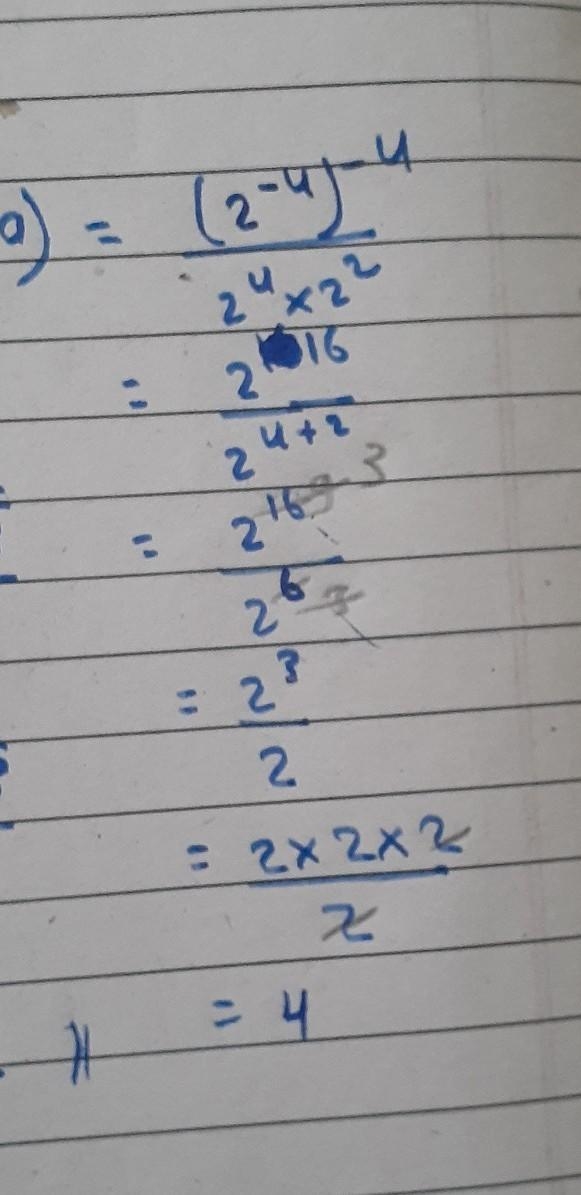 a) = (2⁻⁴)⁻⁴
2⁴ × 2²
= 2¹⁶
2⁴⁺²
= 2¹⁶ 3
2⁶
= 2³
2
= 2 × 2 × 2
2
= 4